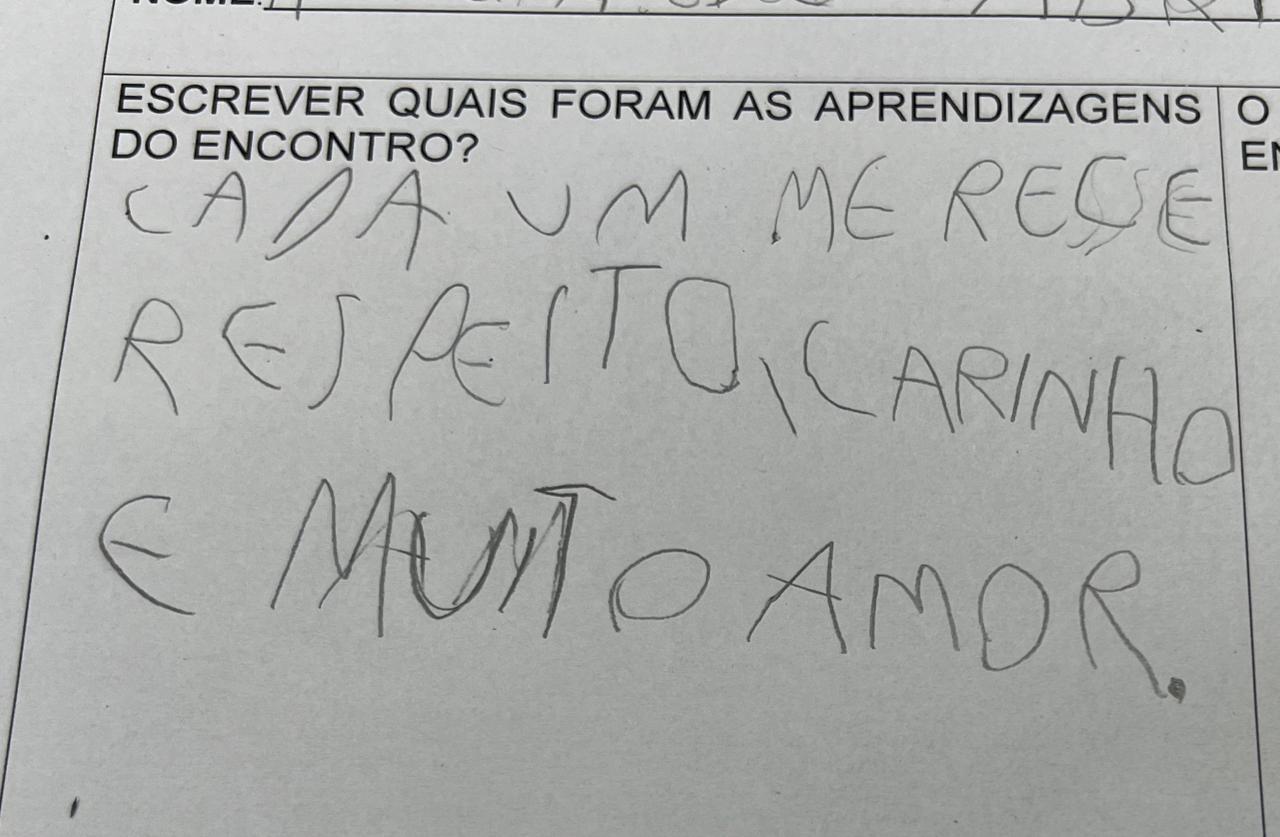 NOME:
ESCREVER QUAIS FORAM AS APRENDIZAGENS
DO ENCONTRO?
O
EN
CADA UM MERECSE
RESPEITO, CARINHO
E MUITO AMOR.